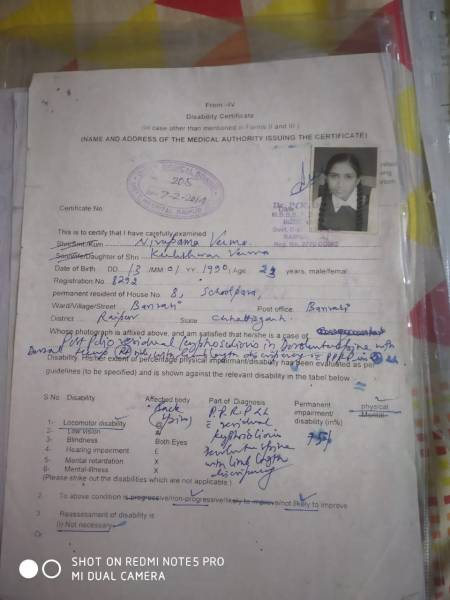 From -IV
Disability Certificate
(In case other than mentioned in Forms II and III )
(NAME AND ADDRESS OF THE MEDICAL AUTHORITY ISSUING THE CERTIFICATE)
205
7-2-2014
Certificate No.
Date
This is to certify that I have carefully examined
Shri/Smt/Kum Nirupama Verma
Son/wife/Daughter of Shri Kuleshwar Verma
Date of Birth DD 13 /MM 01 YY 1990, Age 23 years, male/female
Registration No. 8292
permanent resident of House No. 8, Schoolpara,
Ward/Village/Street Bansari Post office Bansari
District Raipur State Chhattisgarh
Whose photograph is affixed above, and am satisfied that he/she is a case of
Post polio residual kyphoscoliosis in Dorsolumbar spine with
limb length discrepancy
Disability. His/her extent of percentage physical impairment/disability has been evaluated as per
guidelines (to be specified) and is shown against the relevant disability in the tabel below
S No Disability Affected body Part of Diagnosis Permanent impairment/ disability (in%) physical Mental
1- Locomotor disability @ Back Spine P.P.R.P
2- Low vision residual
3- Blindness Both Eyes kyphoscoliosis
4- Hearing impairment £ spine
5- Mental retardation X with limb length
6- Mental-illness X discrepancy
(Please strike out the disabilities which are not applicable )
2 To above condition is progressive/non-progressive/likely to improve/not likely to improve
3 Reassessment of disability is
(i) Not necessary
Or
SHOT ON REDMI NOTE5 PRO
MI DUAL CAMERA